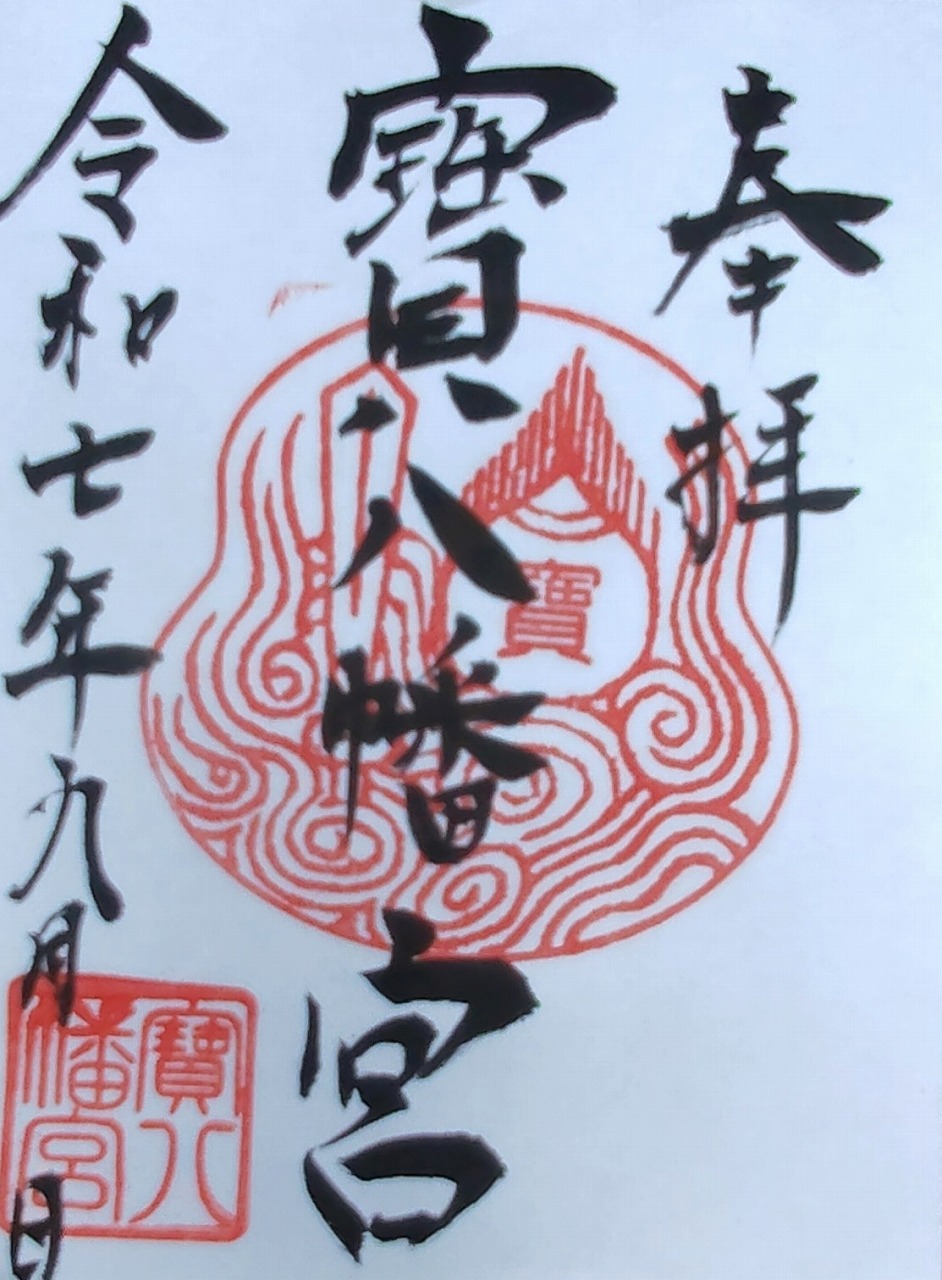 奉拝
寶八幡宮
令和七年九月 日
寶
寶八
幡宮